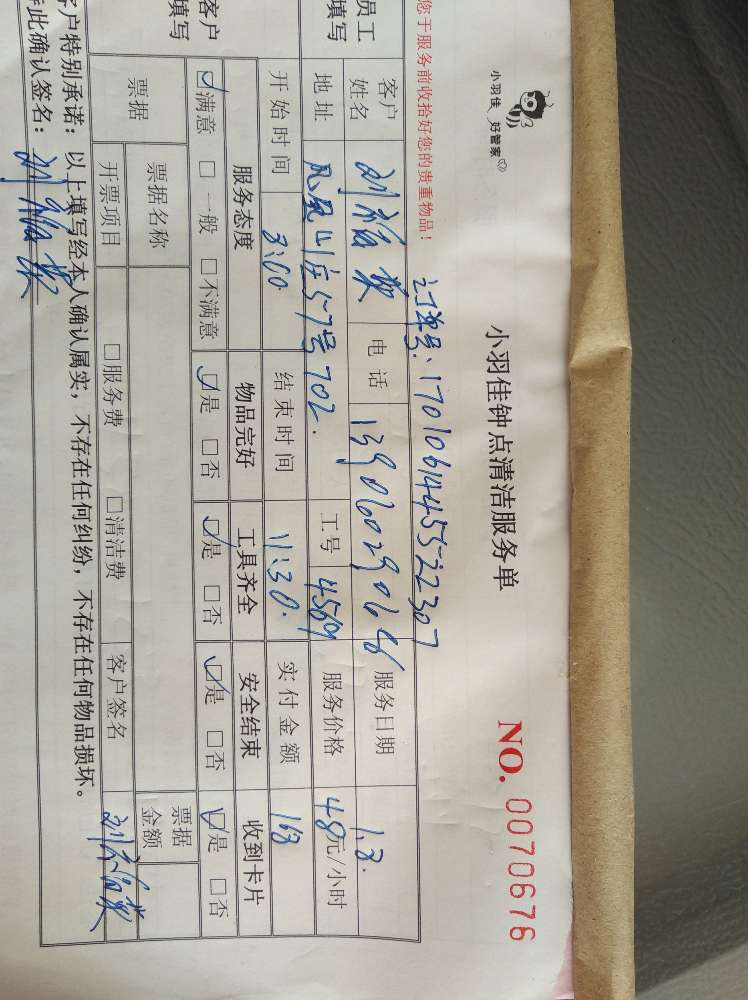 小羽佳 好管家
小羽佳钟点清洁服务单
NO. 0070676
您于服务前收拾好您的贵重物品！
订单号：1701061445522307
员工填写
客户姓名 电话 服务日期 1.3.
地址 凤凰山庄57号702. 工号 4569 服务价格 48元/小时
开始时间 3:00 结束时间 11:30. 实付金额 168
客户填写
服务态度 物品完好 工具齐全 安全结束 收到卡片
☑满意 □一般 □不满意 ☑是 □否 ☑是 □否 ☑是 □否 ☑是 □否
票据 票据名称 票据金额
开票项目 □服务费 □清洁费 客户签名
客户特别承诺：以上填写经本人确认属实，不存在任何纠纷，不存在任何物品损坏。
此确认签名：